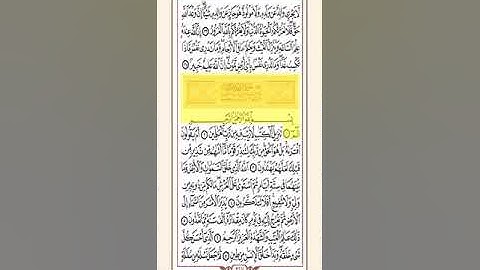 لَا يَجْزِي وَالِدٌ عَن وَلَدِهِ وَلَا مَوْلُودٌ هُوَ جَازٍ عَن وَالِدِهِ شَيْئًا إِنَّ وَعْدَ اللَّهِ
حَقٌّ فَلَا تَغُرَّنَّكُمُ الْحَيَوٰةُ الدُّنْيَا وَلَا يَغُرَّنَّكُم بِاللَّهِ الْغَرُورُ ٣٣ إِنَّ اللَّهَ عِندَهُ
عِلْمُ السَّاعَةِ وَيُنَزِّلُ الْغَيْثَ وَيَعْلَمُ مَا فِي الْأَرْحَامِ وَمَا تَدْرِي نَفْسٌ مَّاذَا
تَكْسِبُ غَدًا وَمَا تَدْرِي نَفْسٌ بِأَيِّ أَرْضٍ تَمُوتُ إِنَّ اللَّهَ عَلِيمٌ خَبِيرٌ ٣٤
بِسْمِ اللَّهِ الرَّحْمَٰنِ الرَّحِيمِ
الٓمٓ ١ تَنزِيلُ الْكِتَٰبِ لَا رَيْبَ فِيهِ مِن رَّبِّ الْعَٰلَمِينَ ٢ أَمْ يَقُولُونَ
افْتَرَىٰهُ بَلْ هُوَ الْحَقُّ مِن رَّبِّكَ لِتُنذِرَ قَوْمًا مَّا أَتَىٰهُم مِّن نَّذِيرٍ مِّن
قَبْلِكَ لَعَلَّهُمْ يَهْتَدُونَ ٣ اللَّهُ الَّذِي خَلَقَ السَّمَٰوَٰتِ وَالْأَرْضَ وَمَا
بَيْنَهُمَا فِي سِتَّةِ أَيَّامٍ ثُمَّ اسْتَوَىٰ عَلَى الْعَرْشِ مَا لَكُم مِّن دُونِهِ مِن
وَلِيٍّ وَلَا شَفِيعٍ أَفَلَا تَتَذَكَّرُونَ ٤ يُدَبِّرُ الْأَمْرَ مِنَ السَّمَاءِ إِلَى
الْأَرْضِ ثُمَّ يَعْرُجُ إِلَيْهِ فِي يَوْمٍ كَانَ مِقْدَارُهُ أَلْفَ سَنَةٍ مِّمَّا تَعُدُّونَ ٥
ذَٰلِكَ عَٰلِمُ الْغَيْبِ وَالشَّهَٰدَةِ الْعَزِيزُ الرَّحِيمُ ٦ الَّذِي أَحْسَنَ كُلَّ
شَيْءٍ خَلَقَهُ وَبَدَأَ خَلْقَ الْإِنسَٰنِ مِن طِينٍ ٧ ثُمَّ جَعَلَ نَسْلَهُ مِن سُلَٰلَةٍ